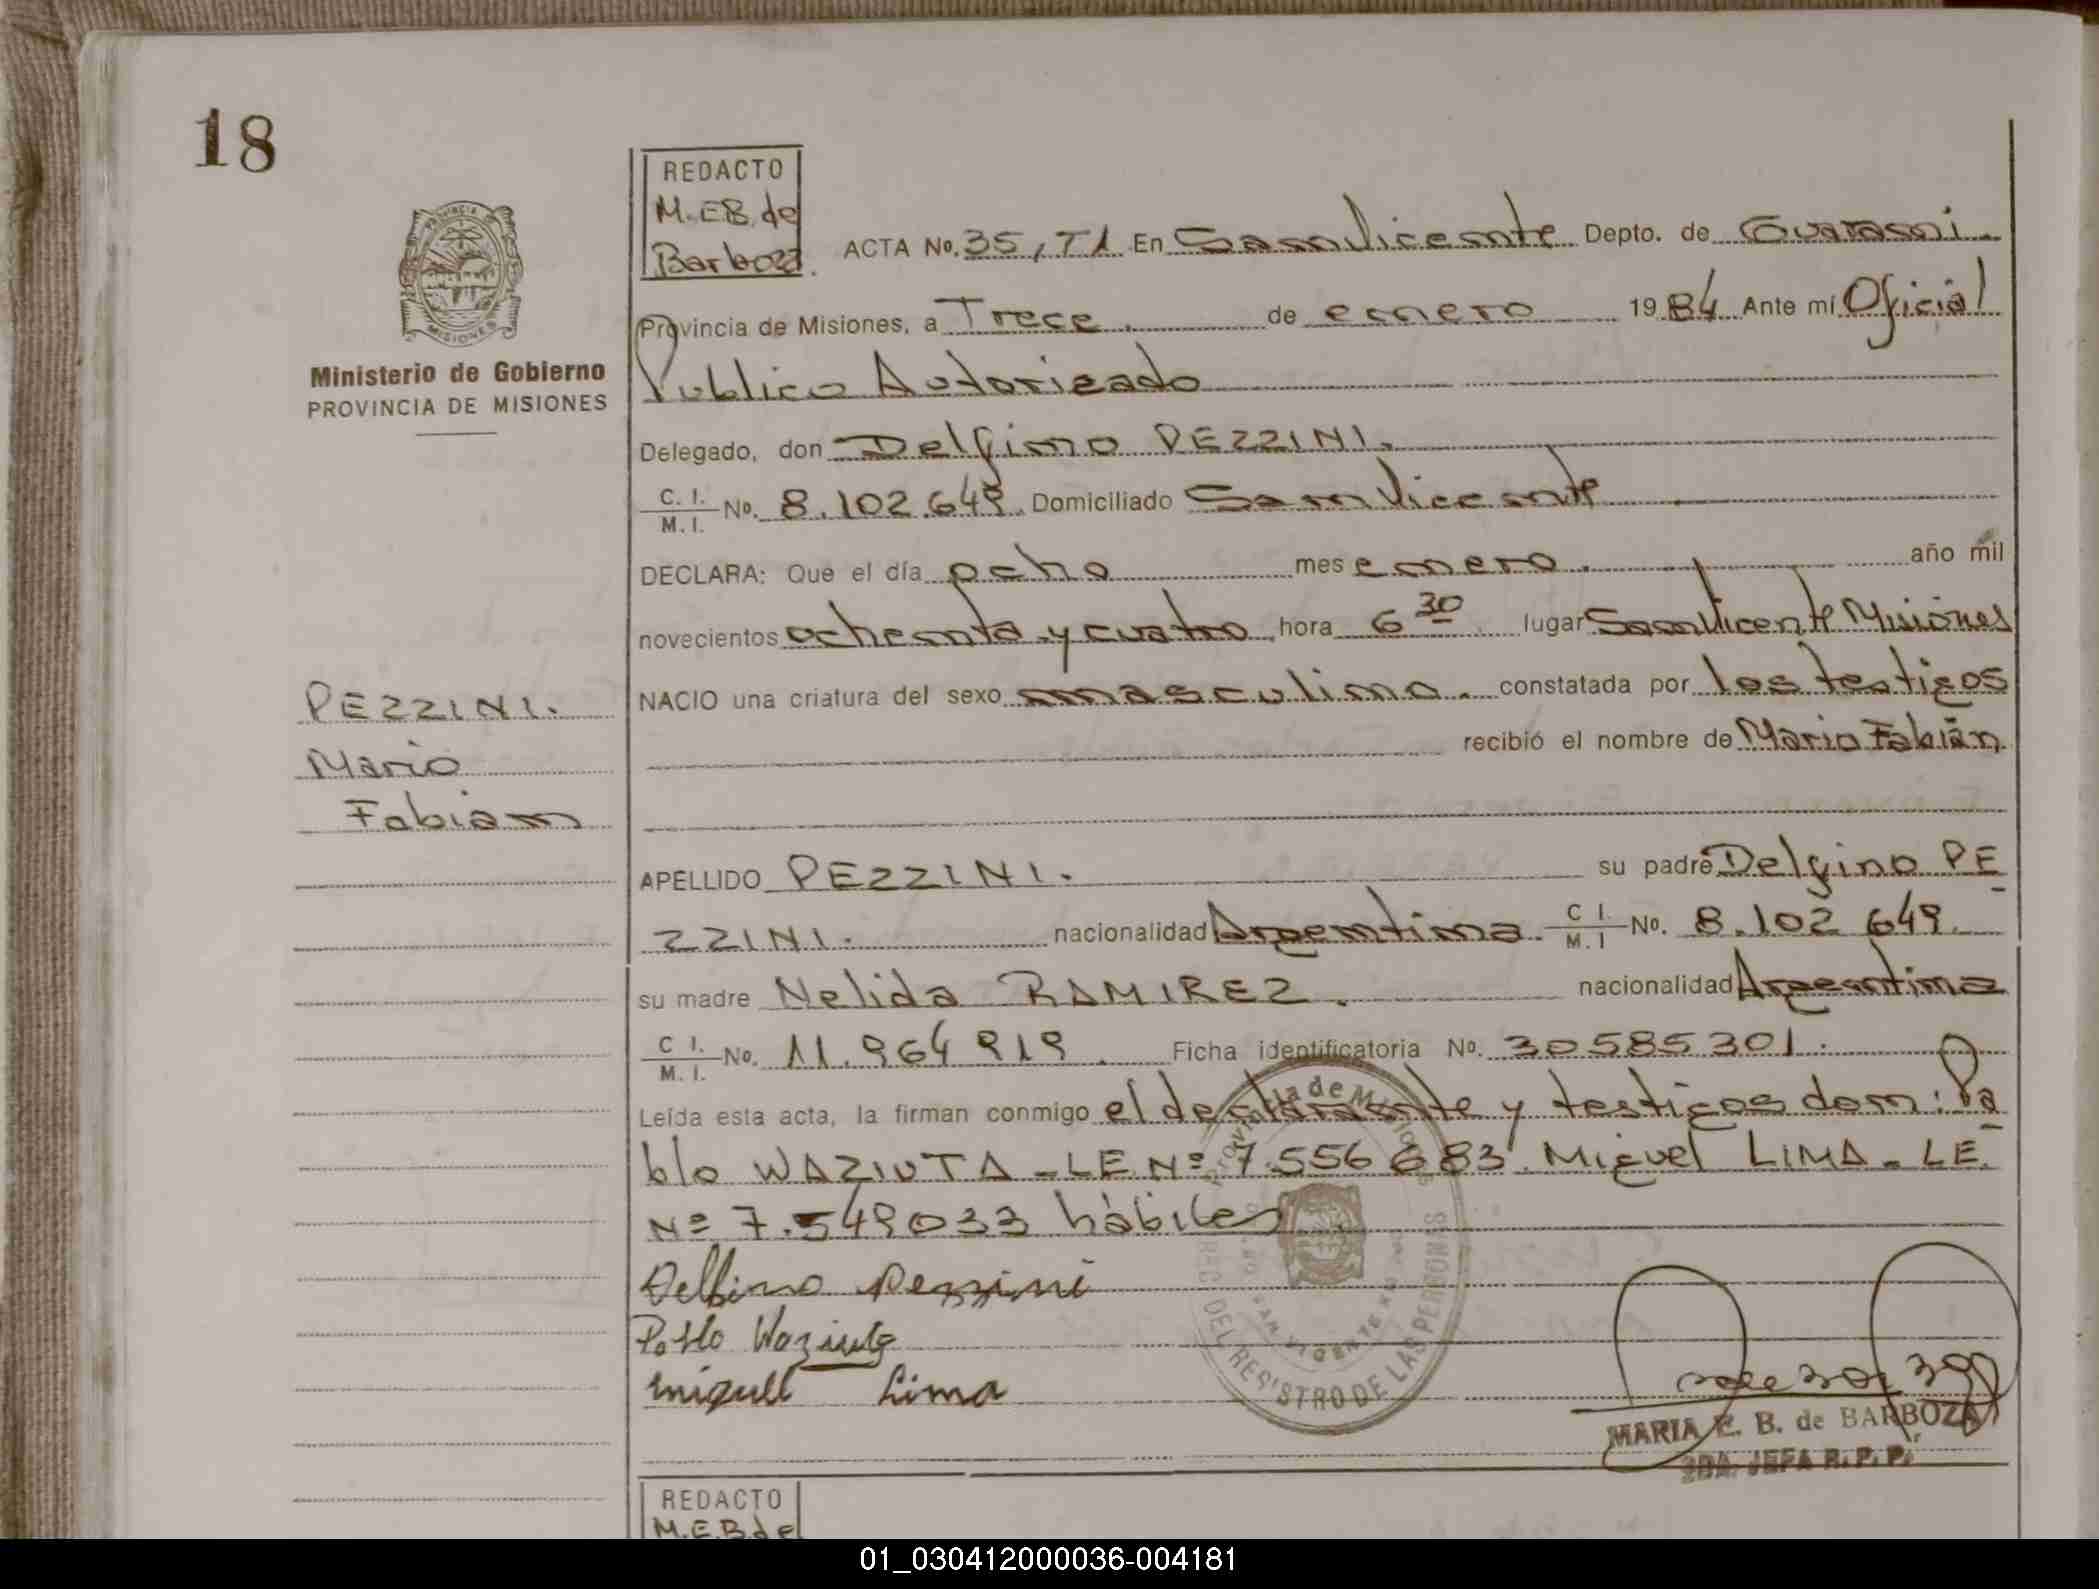 18
REDACTO
M.E.B. de
Barboza.
ACTA No. 35, T1 En San Vicente Depto. de Guaraní
Provincia de Misiones, a Trece. de enero 1984 Ante mí Oficial
Publico Autorizado
Delegado, don Delfino PEZZINI.
C. I.
M. I. No. 8.102.649. Domiciliado San Vicente
DECLARA: Que el día ocho mes enero. año mil
novecientos ochenta y cuatro hora 6 30 lugar San Vicente Misiones
NACIO una criatura del sexo masculino. constatada por los testigos
recibió el nombre de Mario Fabián
APELLIDO PEZZINI. su padre Delfino PE
ZZINI. nacionalidad Argentina. C I.
M. I No. 8.102 649.
su madre Nelida RAMIREZ. nacionalidad Argentina
C I.
M. I. No. 11.964 919. Ficha identificatoria No. 30585301.
Leída esta acta, la firman conmigo el declarante y testigos don: Pa
blo WAZIUTA - LE Nº 7.556 683. Miguel LIMA - LE.
Nº 7.549033 hábiles
Delfino Pezzini
Pablo Waziuta
Miguel Lima
Provincia de Misiones
SAN VICENTE
REG. DEL REGISTRO DE LAS PERSONAS
MARIA E. B. de BARBOZA
2DA. JEFA R. P. P.
PROVINCIA DE
MISIONES
Ministerio de Gobierno
PROVINCIA DE MISIONES
PEZZINI.
Mario
Fabian
REDACTO
M.E.B de
01_030412000036-004181